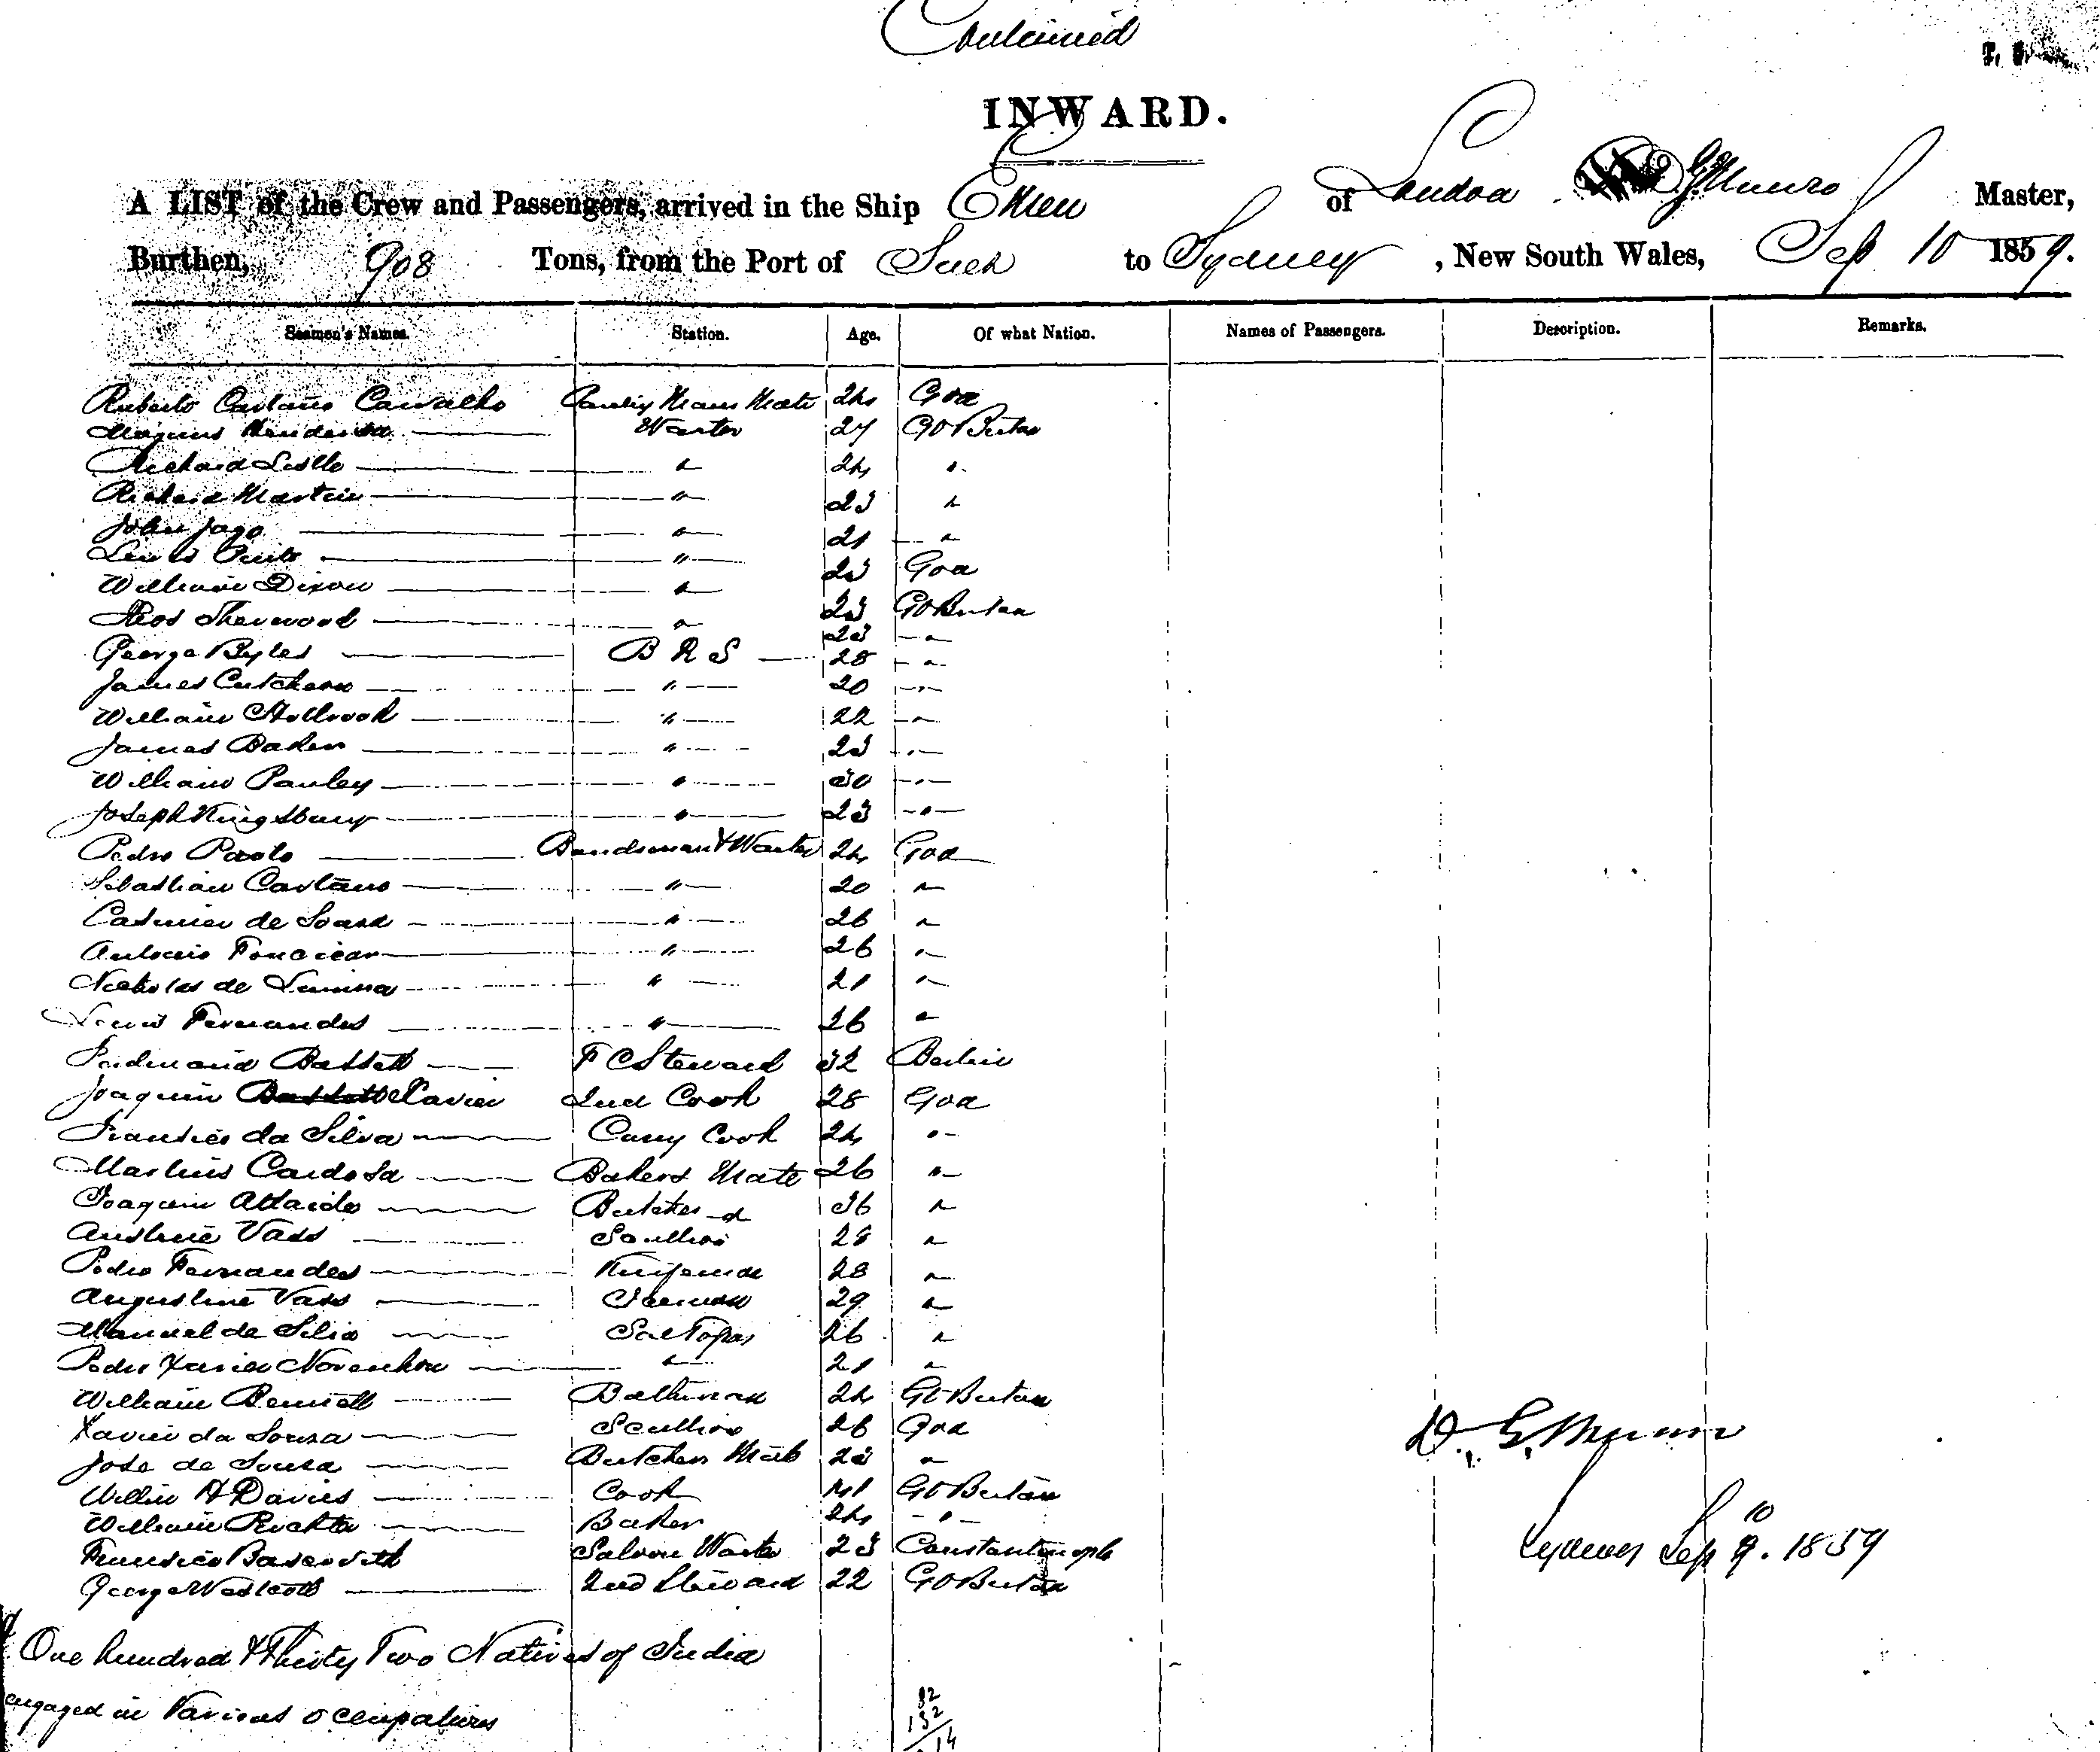 Continued
INWARD.
A LIST of the Crew and Passengers, arrived in the Ship Emeu of London D. G. Munro Master,
Burthen, 908 Tons, from the Port of Suez to Sydney, New South Wales, Sep 10 1859.
Seamen's Names. Station. Age. Of what Nation. Names of Passengers. Description. Remarks.
Roberto Caetano Carvalho Mate 24 Goa
Magnus Henderson Waiter 27 Gt Britan
Richard Lisle " 24 "
Richard Martin " 23 "
John Jago " 21 "
Lewis Pinto " 23 Goa
William Dixon " 23 Gt Britan
Thos Sherwood " 23 "
George Byles B R S 28 "
James Cutcheon " 20 "
William Holbrook " 22 "
James Baker " 23 "
William Pauley " 30 "
Joseph Kingsbury " 23 "
Pedro Paolo Bandsman & Waiter 24 Goa
Sebastian Caetano " 20 "
Casimir de Souza " 26 "
Antonio " 26 "
Nicholas de " 21 "
Lewis Fernandes " 26 "
Ferdinand Bassett F C Steward 32 Berlin
Joaquim Xavier 2nd Cook 28 Goa
Francisco da Silva Cook 24 "
Martins Cardosa Bakers Mate 26 "
Joaquim Attaide Butcher 36 "
Vass Scullion 28 "
Pedro Fernandes Knifeman 28 "
Augustine Vass 29 "
Manuel de Silva Topas 26 "
Pedro Xavier Noronhow " 21 "
William Bennett Bathman 24 Gt Britan
Xavier da Souza Scullion 26 Goa
Jose de Souza Butchers Mate 23 "
Willm H Davies Cook 41 Gt Britan
William Baker 24 "
Francisco Saloon Waiter 23 Constantinople
George Westcott 2nd Steward 22 Gt Britan
D. G. Munro
Sydney Sep 10 9. 1859
One hundred & Thirty Two Natives of India
engaged in Various occupations
82
132
214